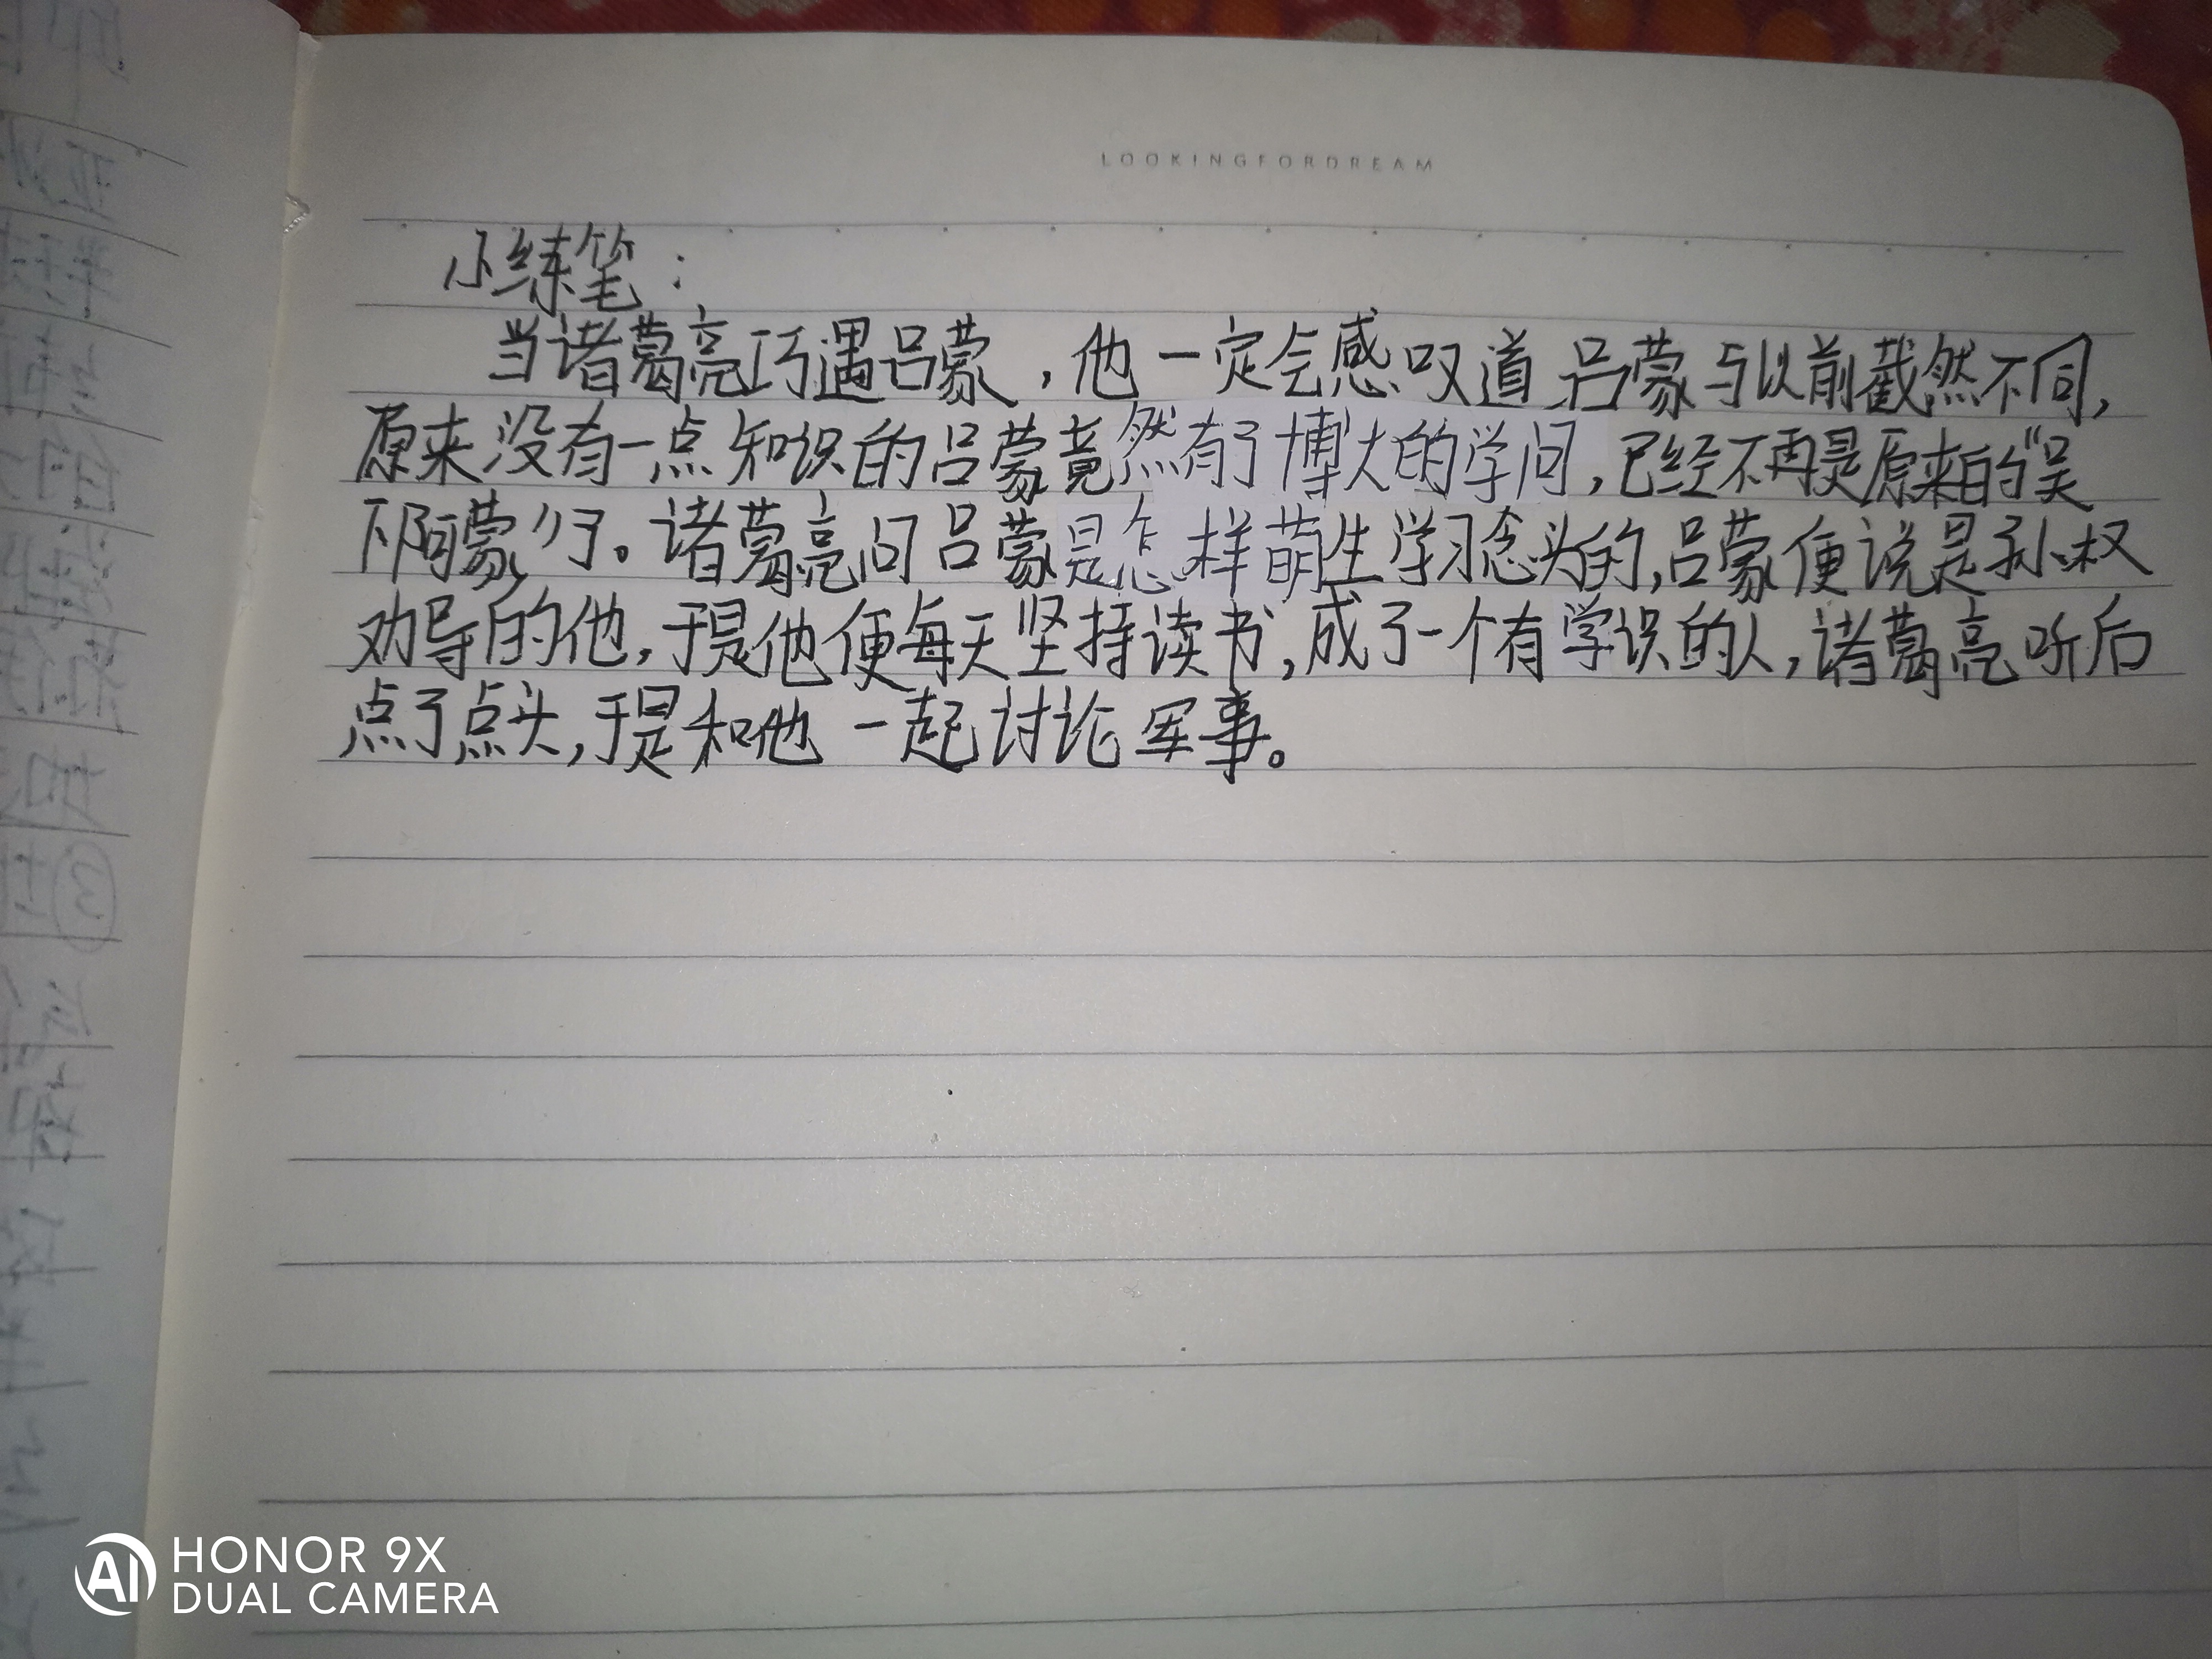 LOOKINGFORDREAM
小练笔：
当诸葛亮巧遇吕蒙，他一定会感叹道吕蒙与以前截然不同，
原来没有一点知识的吕蒙竟然有了博大的学问，已经不再是原来的“吴
下阿蒙”了。诸葛亮问吕蒙是怎样萌生学习念头的，吕蒙便说是孙权
劝导的他，于是他便每天坚持读书，成了一个有学识的人，诸葛亮听后
点了点头，于是和他一起讨论军事。
AI HONOR 9X
DUAL CAMERA